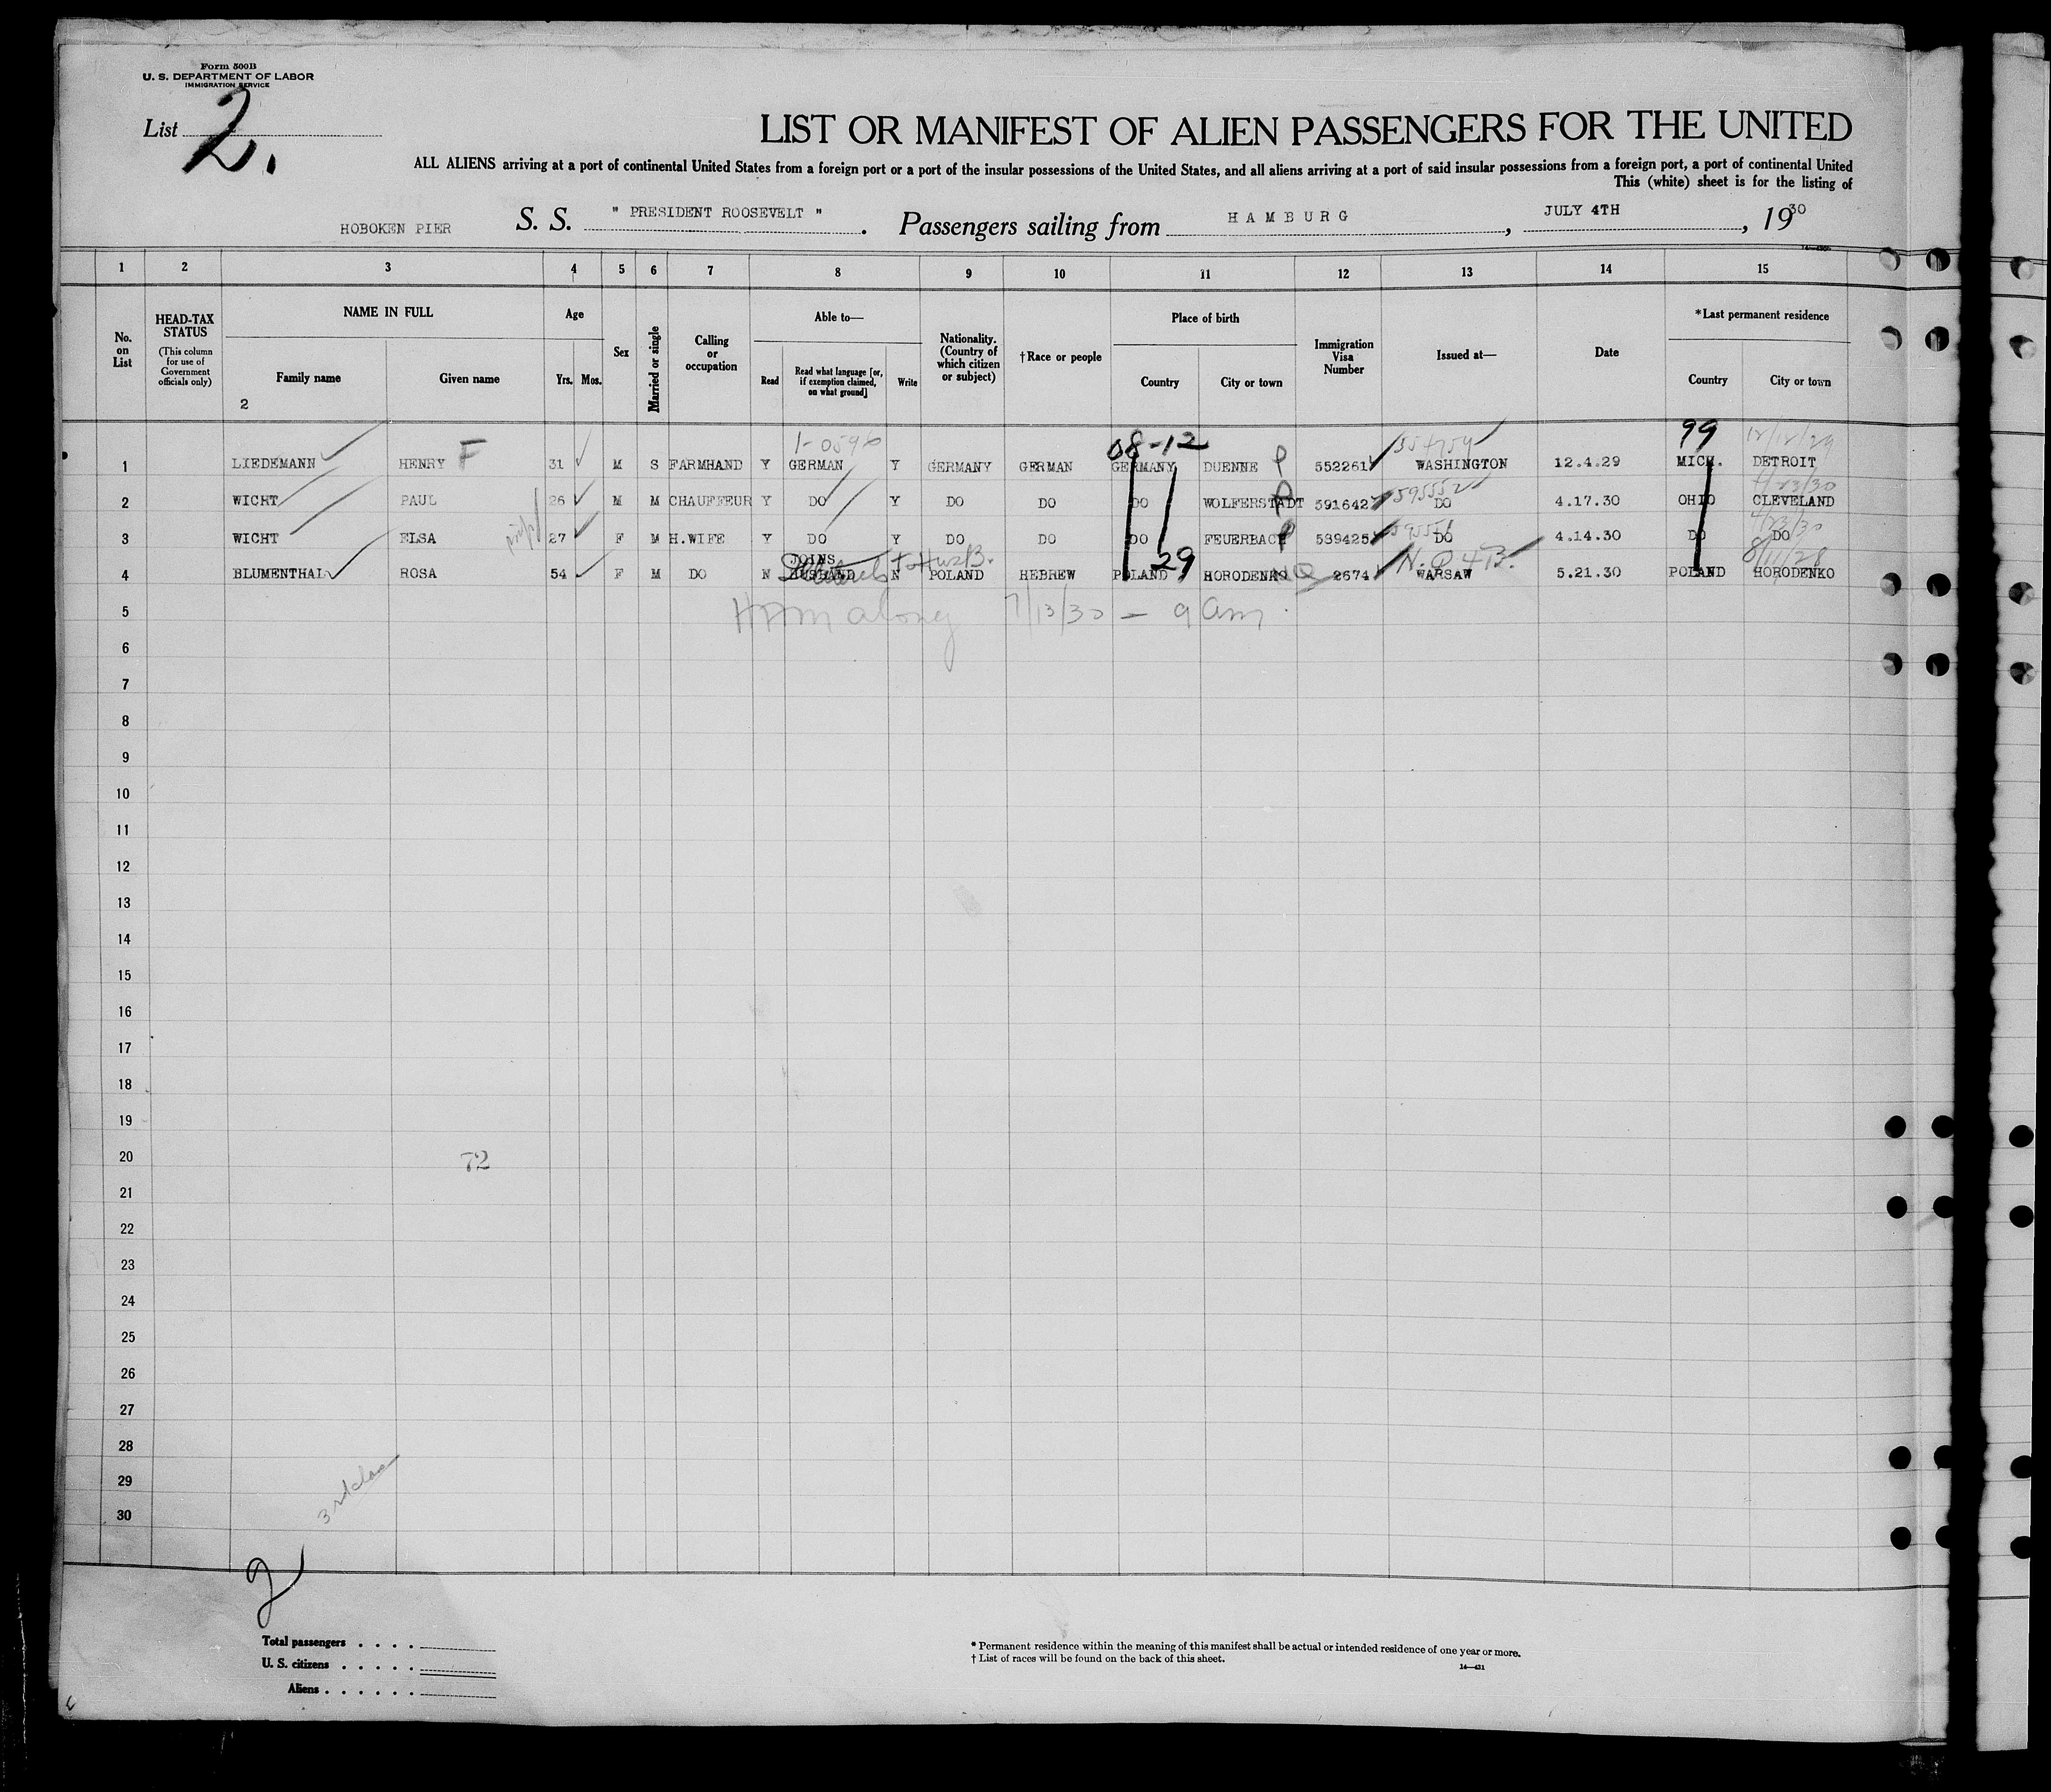 Form 500B
U. S. DEPARTMENT OF LABOR
IMMIGRATION SERVICE
List 2.
LIST OR MANIFEST OF ALIEN PASSENGERS FOR THE UNITED
ALL ALIENS arriving at a port of continental United States from a foreign port or a port of the insular possessions of the United States, and all aliens arriving at a port of said insular possessions from a foreign port, a port of continental United
This (white) sheet is for the listing of
HOBOKEN PIER S. S. " PRESIDENT ROOSEVELT " . Passengers sailing from HAMBURG , JULY 4TH , 1930
1 2 3 4 5 6 7 8 9 10 11 12 13 14 15
No. on List
HEAD-TAX STATUS (This column for use of Government officials only)
NAME IN FULL
Family name Given name
2
Age
Yrs. Mos.
Sex
Married or single
Calling or occupation
Able to—
Read Read what language [or, if exemption claimed, on what ground] Write
Nationality. (Country of which citizen or subject)
†Race or people
Place of birth
Country City or town
Immigration Visa Number
Issued at—
Date
*Last permanent residence
Country City or town
1-0596 08-12 99 12/12/29
1 LIEDEMANN HENRY F 31 M S FARMHAND Y GERMAN Y GERMANY GERMAN GERMANY DUENNE P 552261 WASHINGTON 12.4.29 MICH. DETROIT
595552
2 WICHT PAUL 26 M M CHAUFFEUR Y DO Y DO DO DO WOLFERSTADT P 591642 DO 4.17.30 OHIO CLEVELAND
4/23/30
3 WICHT ELSA 27 F M H.WIFE Y DO Y DO DO DO FEUERBACH P 539425 DO 4.14.30 DO DO
JOINS to Husb. 29 N.Q 4B. 8/11/28
4 BLUMENTHAL ROSA 54 F M DO N HUSBAND N POLAND HEBREW POLAND HORODENKO NQ 2674 WARSAW 5.21.30 POLAND HORODENKO
5 along 7/13/30 — 9 am
6
7
8
9
10
11
12
13
14
15
16
17
18
19
20 72
21
22
23
24
25
26
27
28
29
30
3rd clas
2
Total passengers . . . .
U. S. citizens . . . . .
Aliens . . . . . .
* Permanent residence within the meaning of this manifest shall be actual or intended residence of one year or more.
† List of races will be found on the back of this sheet.
14—421